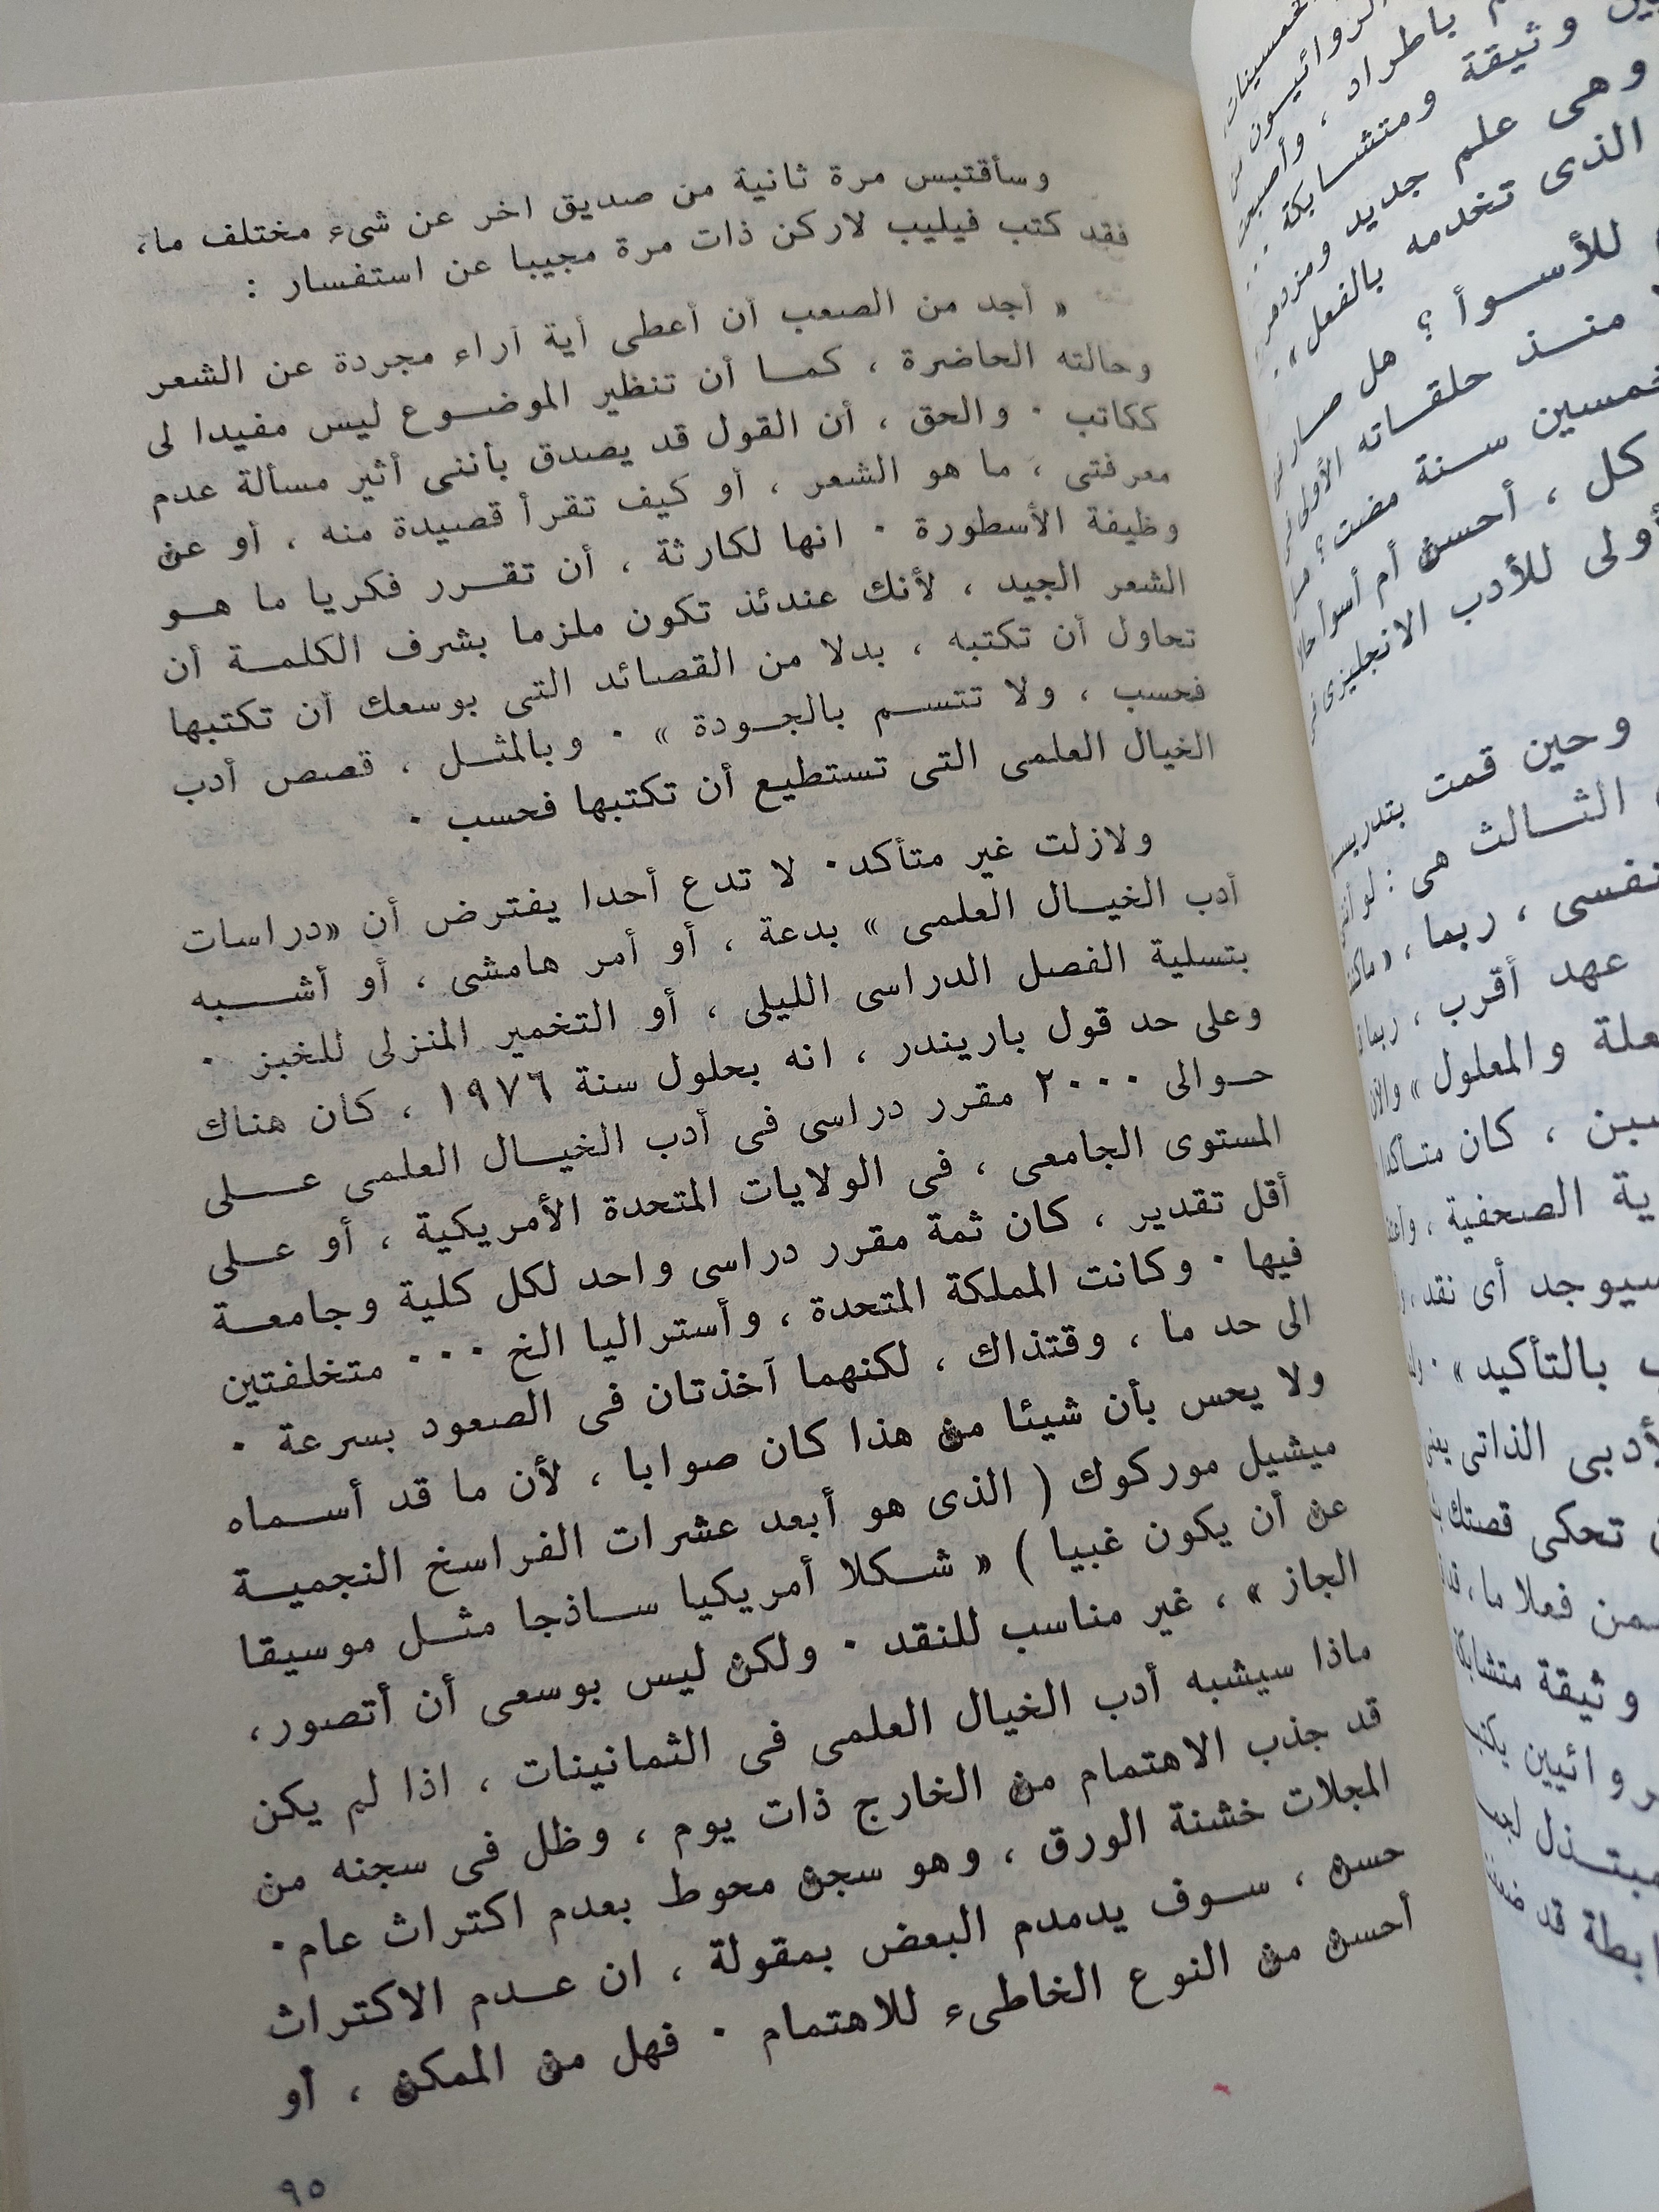 وسأقتبس مرة ثانية من صديق اخر عن شىء مختلف ما،
فقد كتب فيليب لاركن ذات مرة مجيبا عن استفسار :
« أجد من الصعب أن أعطى أية آراء مجردة عن الشعر
وحالته الحاضرة ، كما أن تنظير الموضوع ليس مفيدا لى
ككاتب · والحق ، أن القول قد يصدق بأننى أثير مسألة عدم
معرفتى ، ما هو الشعر ، أو كيف تقرأ قصيدة منه ، أو عن
وظيفة الأسطورة · انها لكارثة ، أن تقرر فكريا ما هو
الشعر الجيد ، لأنك عندئذ تكون ملزما بشرف الكلمة أن
تحاول أن تكتبه ، بدلا من القصائد التى بوسعك أن تكتبها
فحسب ، ولا تتسم بالجودة » · وبالمثل ، قصص أدب
الخيال العلمى التى تستطيع أن تكتبها فحسب ·
ولازلت غير متأكد· لا تدع أحدا يفترض أن «دراسات
أدب الخيال العلمى » بدعة ، أو أمر هامشى ، أو أشبه
بتسلية الفصل الدراسى الليلى ، أو التخمير المنزلى للخبز ·
وعلى حد قول باريندر ، انه بحلول سنة ١٩٧٦ ، كان هناك
حوالى ٢٠٠٠ مقرر دراسى فى أدب الخيال العلمى على
المستوى الجامعى ، فى الولايات المتحدة الأمريكية ، أو على
أقل تقدير ، كان ثمة مقرر دراسى واحد لكل كلية وجامعة
فيها · وكانت المملكة المتحدة ، وأستراليا الخ ··· متخلفتين
الى حد ما ، وقتذاك ، لكنهما آخذتان فى الصعود بسرعة ·
ولا يحس بأن شيئا من هذا كان صوابا ، لأن ما قد أسماه
ميشيل موركوك ( الذى هو أبعد عشرات الفراسخ النجمية
عن أن يكون غبيا ) « شكلا أمريكيا ساذجا مثل موسيقا
الجاز » ، غير مناسب للنقد · ولكن ليس بوسعى أن أتصور،
ماذا سيشبه أدب الخيال العلمى فى الثمانينات ، اذا لم يكن
قد جذب الاهتمام من الخارج ذات يوم ، وظل فى سجنه من
المجلات خشنة الورق ، وهو سجن محوط بعدم اكتراث عام·
حسن ، سوف يدمدم البعض بمقولة ، ان عدم الاكتراث
أحسن من النوع الخاطىء للاهتمام · فهل من الممكن ، أو
٩٥
باطراد ، وأصبحت
وثيقة ومتشابكة
وهى علم جديد ومزدهر
الذى تخدمه بالفعل»
للأسوأ ؟ هل صار
منذ حلقاته الأولى
خمسين سنة مضت ؟
كل ، أحسن أم أسوأ
أولى للأدب الانجليزى
وحين قمت بتدريس
الثالث هى : لو
نفسى ، ربما ،
عهد أقرب ،
والمعلول »
كان
الصحفية ،
سيوجد أى نقد
بالتأكيد» ·
الذاتى
تحكى قصتك
فعلا ما،
وثيقة متشابكة